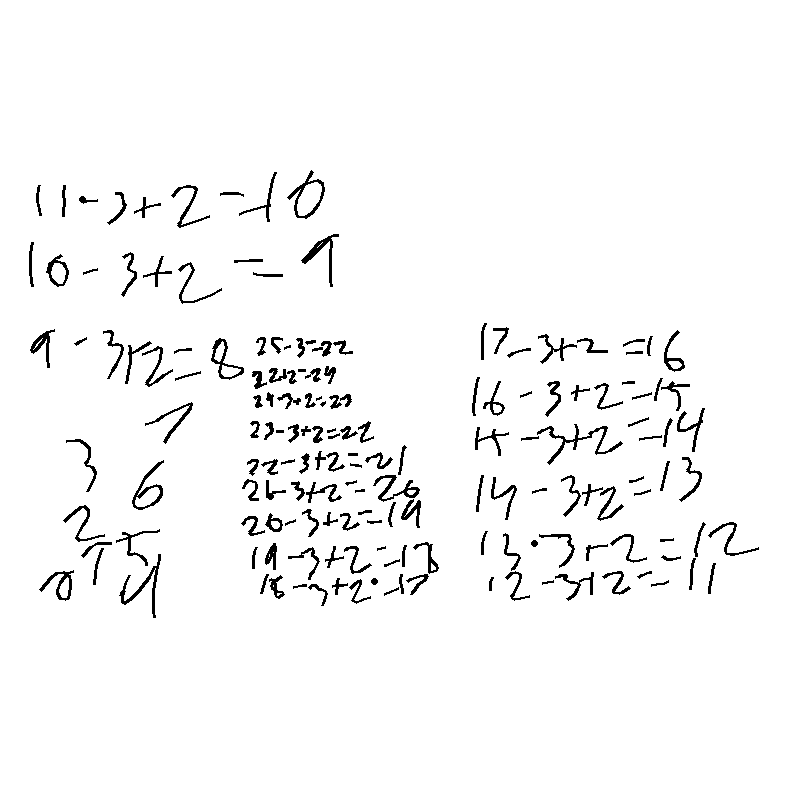 11-3+2=10
10-3+2=9
9-3+2=8
7
6
5
4
3
2
1
0
25-3=22
22+2=24
24-3+2=23
23-3+2=22
22-3+2=21
21-3+2=20
20-3+2=19
19-3+2=18
18-3+2=17
17-3+2=16
16-3+2=15
15-3+2=14
14-3+2=13
13-3+2=12
12-3+2=11